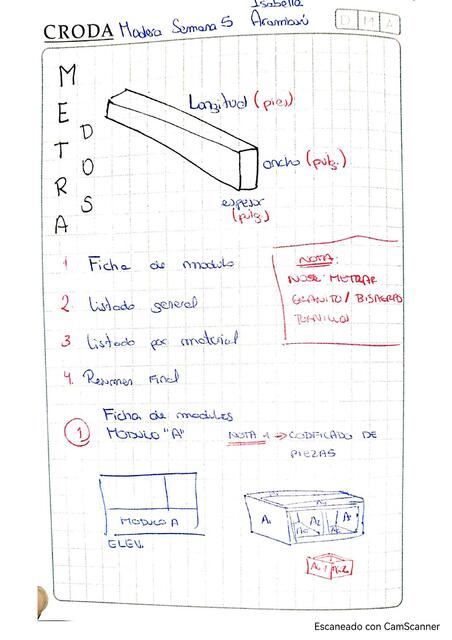 Isabella
CRODA Madera Semana 5 Aramburú
D M A
METRADOS
Longitud (pies)
ancho (pulg.)
espesor
(pulg.)
1 Ficha de modulo
2 Listado general
3 Listado por material
4. Resumen Final
NOTA:
NO SE METRAR
GRANITO / BISAGRAS
TORNILLOS
Ficha de modulos
1 MODULO "A"
NOTA 1 → CODIFICADO DE
PIEZAS
MODULO A
ELEV.
A1
Escaneado con CamScanner